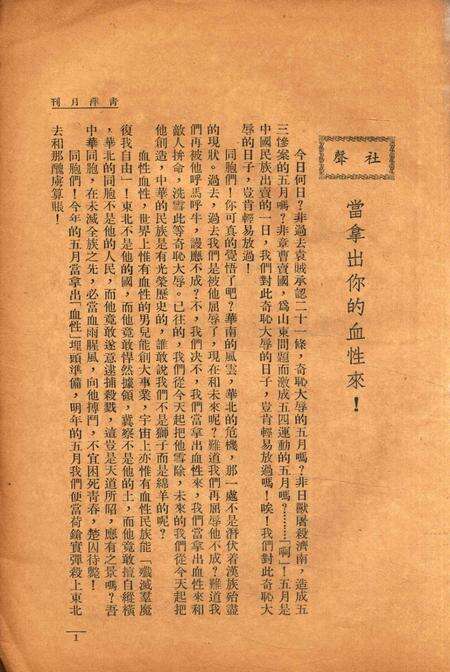 青萍月刊
社聲
當拿出你的血性來！
今日何日？非過去袁賊承認二十一條，奇恥大辱的五月嗎？非日獸屠殺濟南，造成五
三慘案的五月嗎？非章曹賣國，爲山東問題而激成五四運動的五月嗎？………「啊」！五月是
中國民族出賣的一日，我們對此奇恥大辱的日子，豈肯輕易放過嗎！唉！我們對此奇恥大
辱的日子，豈肯輕易放過！
同胞們！你可真的覺悟了吧？華南的風雲，華北的危機，那一處不是潛伏着漢族殆盡
的現狀。過去，過去我們是被他屈辱了，現在和未來呢？難道我們再屈辱他不成？難道我
們再被他呼馬呼牛，謾應不成？不，我們决不，我們當拿出血性來，我們當拿出血性來和
敵人拚命，洗雪此等奇恥大辱。已往的，我們從今天起把他雪除，未來的我們從今天起把
他創造，中華的民族是有光榮歷史的，誰敢說我們不是獅子而是綿羊的呢？
血性血性，世界上惟有血性的男兒能創大事業，宇宙上亦惟有血性民族能「殲滅羣魔
復我自由」！東北不是他的國，而他竟敢悍然據領，冀察不是他的土，而他竟敢擅自縱橫
，華北的同胞不是他的人民，而他竟敢遂意逮捕殺戮，這豈是天道所昭，應有之景嗎？吾
中華同胞，在未滅全族之先，必當血雨腥風，向他搏鬥，不宜困死青春，楚囚待斃！
同胞們！今年的五月當拿出「血性」埋頭準備，明年的五月我們便當荷鎗實彈殺上東北
去和那醜虜算賬！
1